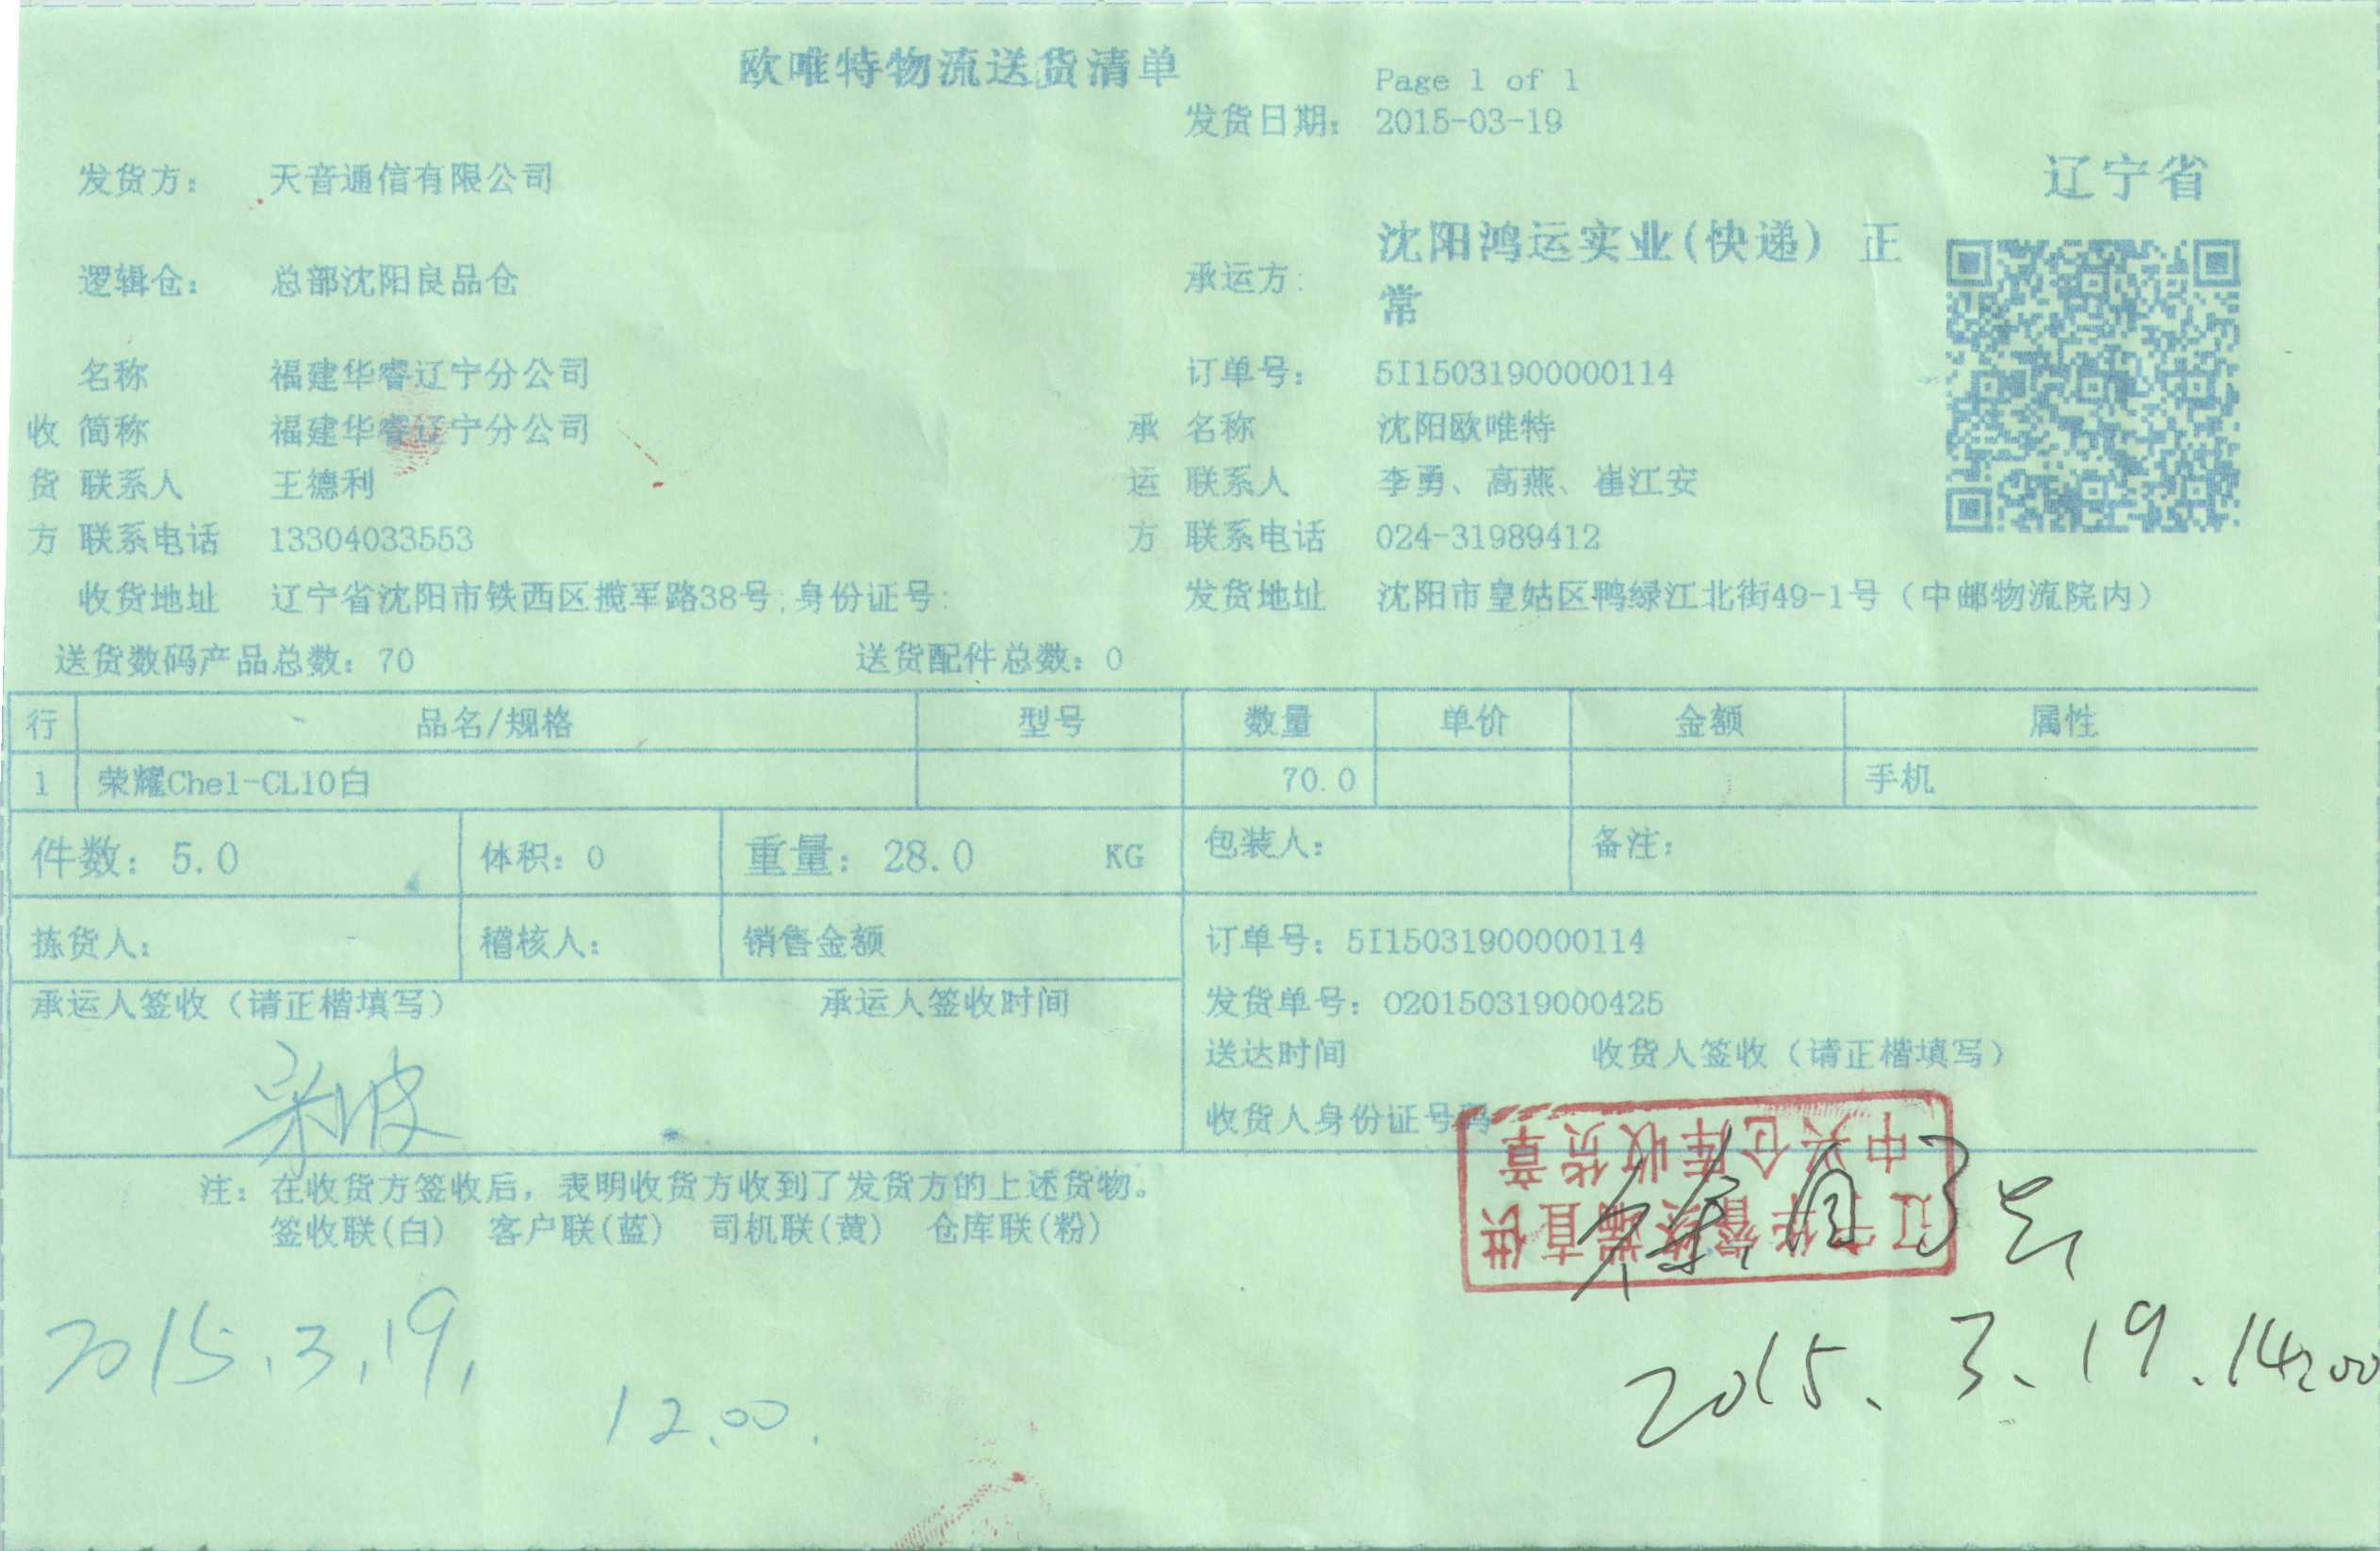 欧唯特物流送货清单
Page 1 of 1
发货日期: 2015-03-19
发货方: 天音通信有限公司
辽宁省
逻辑仓: 总部沈阳良品仓
承运方: 沈阳鸿运实业(快递) 正
常
名称 福建华睿辽宁分公司
订单号: 5I15031900000114
收 简称 福建华睿辽宁分公司
承 名称 沈阳欧唯特
货 联系人 王德利
运 联系人 李勇、高燕、崔江安
方 联系电话 13304033553
方 联系电话 024-31989412
收货地址 辽宁省沈阳市铁西区揽军路38号;身份证号:
发货地址 沈阳市皇姑区鸭绿江北街49-1号(中邮物流院内)
送货数码产品总数: 70 送货配件总数: 0
行 品名/规格 型号 数量 单价 金额 属性
1 荣耀Che1-CL10白 70.0 手机
件数: 5.0 体积: 0 重量: 28.0 KG 包装人: 备注:
拣货人: 稽核人: 销售金额 订单号: 5I15031900000114
承运人签收(请正楷填写) 承运人签收时间
发货单号: O20150319000425
送达时间 收货人签收(请正楷填写)
收货人身份证号码
辽宁华睿终端直供
中央仓库收货章
注: 在收货方签收后, 表明收货方收到了发货方的上述货物。
签收联(白) 客户联(蓝) 司机联(黄) 仓库联(粉)
2015.3.19.
12.00.
2015.3.19.14:00